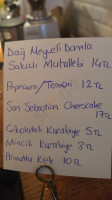 Dağ Meyveli Damla
Sakızlı Muhallebi 14TL
Popcorn / Teremisu 12TL
San Sebastian Cheesecake
17TL
Çikolatalı Kurabiye 5TL
Mincik Kurabiye 3TL
Armutlu Kek 10TL